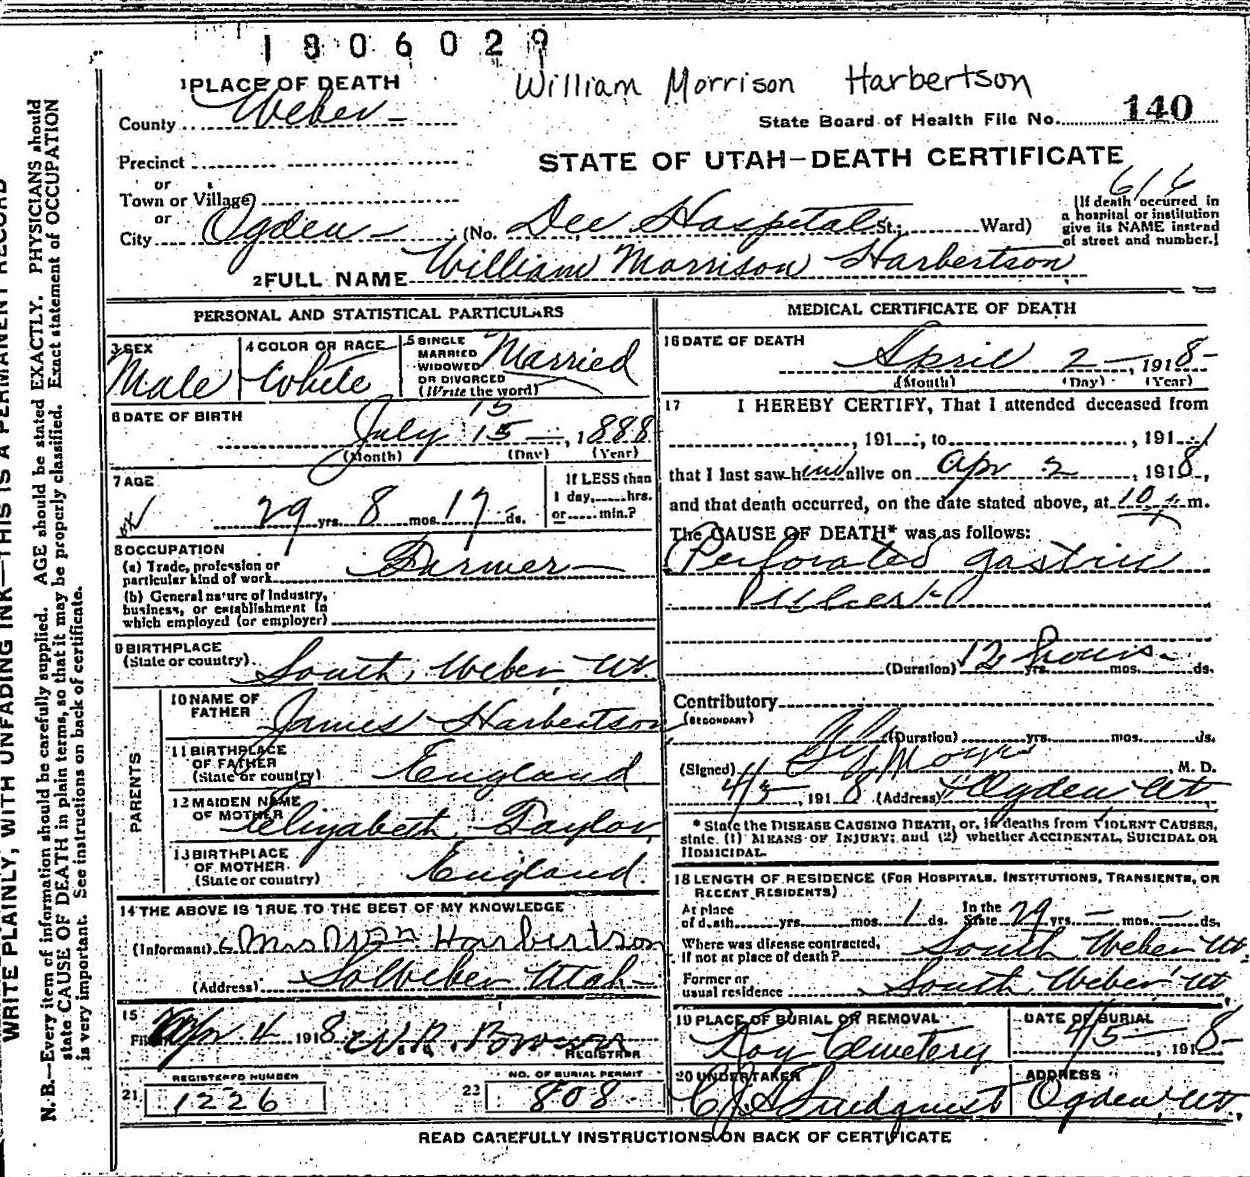 1806029
William Morrison Harbertson
1 PLACE OF DEATH
County Weber
State Board of Health File No. 140
Precinct
STATE OF UTAH—DEATH CERTIFICATE
or
Town or Village
616
or
City Ogden (No. Dee Hospital St.; Ward)
[If death occurred in
a hospital or institution
give its NAME instead
of street and number.]
2 FULL NAME William Morrison Harbertson
PERSONAL AND STATISTICAL PARTICULARS
3 SEX
Male
4 COLOR OR RACE
White
5 SINGLE
MARRIED
WIDOWED
OR DIVORCED
(Write the word)
Married
6 DATE OF BIRTH
15
July 15, 1888
(Month) (Day) (Year)
7 AGE
29 yrs. 8 mos. 17 ds.
If LESS than
1 day, hrs.
or min.?
8 OCCUPATION
(a) Trade, profession or
particular kind of work Farmer
(b) General nature of Industry,
business, or establishment in
which employed (or employer)
9 BIRTHPLACE
(State or country) South Weber Ut.
PARENTS
10 NAME OF
FATHER James Harbertson
11 BIRTHPLACE
OF FATHER
(State or country) England
12 MAIDEN NAME
OF MOTHER Elizabeth Taylor
13 BIRTHPLACE
OF MOTHER
(State or country) England
14 THE ABOVE IS TRUE TO THE BEST OF MY KNOWLEDGE
(Informant) Mrs Harbertson
(Address) So Weber Utah
15
Filed Apr. 4 1918 W.R. Bowson
REGISTRAR
REGISTERED NUMBER
21 1226
NO. OF BURIAL PERMIT
23 808
MEDICAL CERTIFICATE OF DEATH
16 DATE OF DEATH
April 2, 1918
(Month) (Day) (Year)
17 I HEREBY CERTIFY, That I attended deceased from
, 191 , to , 191
that I last saw him alive on Apr 2, 1918,
and that death occurred, on the date stated above, at 10 m.
The CAUSE OF DEATH* was as follows:
Perforated gastric
ulcer
(Duration) 12 hours yrs. mos. ds.
Contributory
(SECONDARY)
(Duration) yrs. mos. ds.
(Signed) M. D.
1918 (Address) Ogden Ut
* State the DISEASE CAUSING DEATH, or, in deaths from VIOLENT CAUSES,
state (1) MEANS OF INJURY; and (2) whether ACCIDENTAL, SUICIDAL OR
HOMICIDAL.
18 LENGTH OF RESIDENCE (FOR HOSPITALS, INSTITUTIONS, TRANSIENTS, OR
RECENT RESIDENTS)
At place
of death yrs. mos. 1 ds. In the
State 29 yrs. – mos. – ds.
Where was disease contracted,
if not at place of death? South Weber Ut.
Former or
usual residence South Weber Ut.
19 PLACE OF BURIAL OR REMOVAL
Roy Cemetery
DATE OF BURIAL
4/5, 1918
20 UNDERTAKER
ADDRESS
Ogden, Ut.
READ CAREFULLY INSTRUCTIONS ON BACK OF CERTIFICATE
WRITE PLAINLY, WITH UNFADING INK—THIS IS A PERMANENT RECORD
N. B.—Every item of information should be carefully supplied. AGE should be stated EXACTLY. PHYSICIANS should
state CAUSE OF DEATH in plain terms, so that it may be properly classified. Exact statement of OCCUPATION
is very important. See instructions on back of certificate.